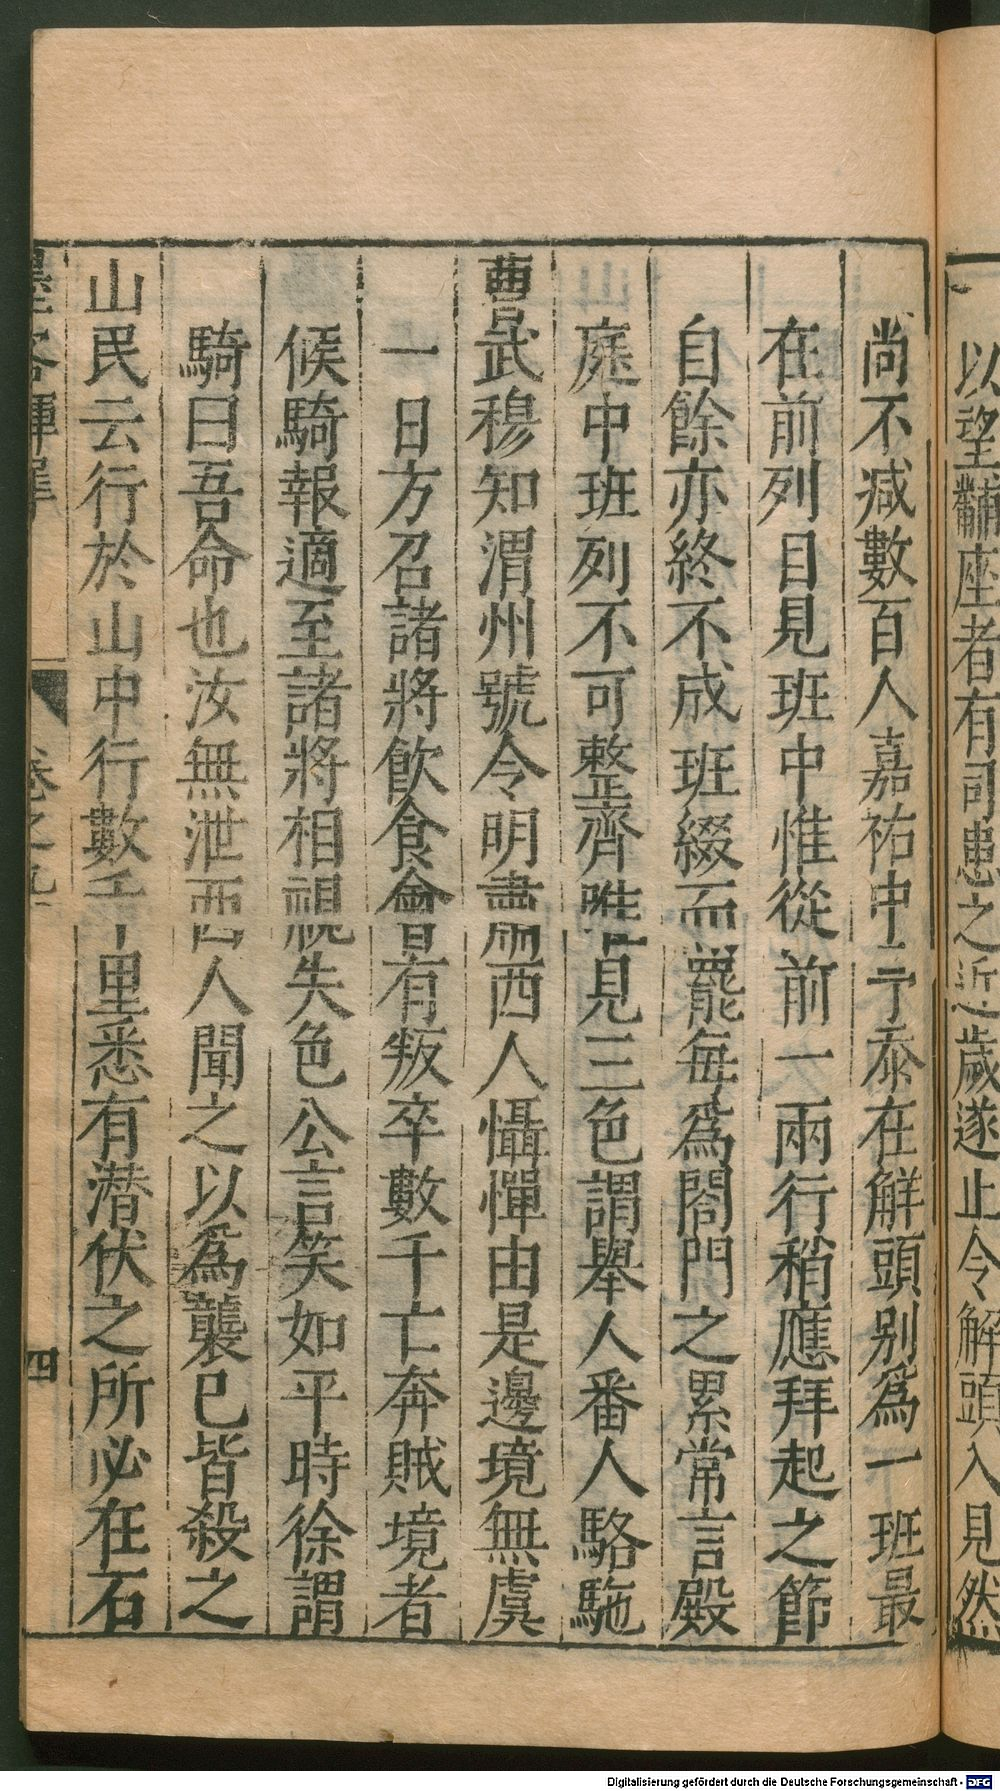 以望黼座者有司患之近歲遂止令解頭入見然
尚不減數百人嘉祐中予忝在鮮頭别為一班最
在前列目見班中惟從前一兩行稍應拜起之節
自餘亦終不成班綴而罷每為閤門之累常言殿
庭中班列不可整齊唯見三色謂舉人番人駱駞
曹武穆知渭州號令明肅西人懾憚由是邊境無虞
一日方召諸將飲食會有叛卒數千亡奔賊境者
候騎報適至諸將相視失色公言笑如平時徐謂
騎曰吾命也汝無泄西人聞之以為襲已皆殺之
山民云行於山中行數千里悉有潛伏之所必在石
墨客揮犀
卷之九
四
Digitalisierung gefördert durch die Deutsche Forschungsgemeinschaft - DFG